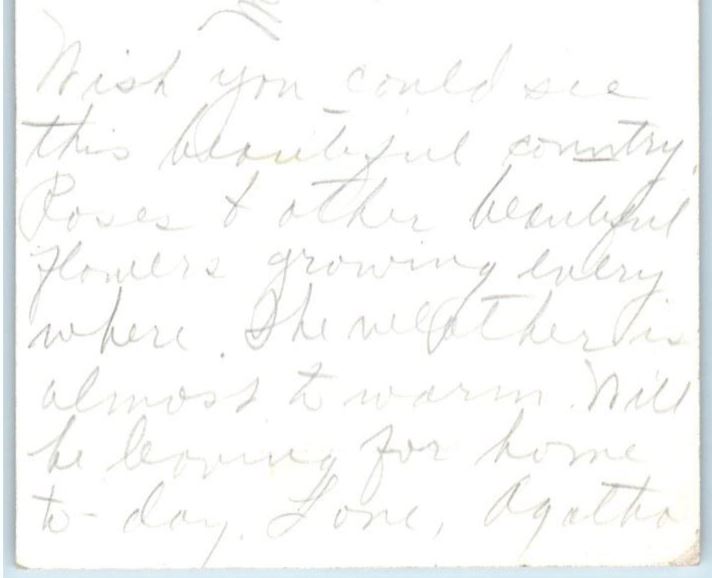 Wish you could see
this beautiful country.
Roses & other beautiful
flowers growing every
where. The weather is
almost to warm. Will
be leaving for home
to-day. Love, Agatha